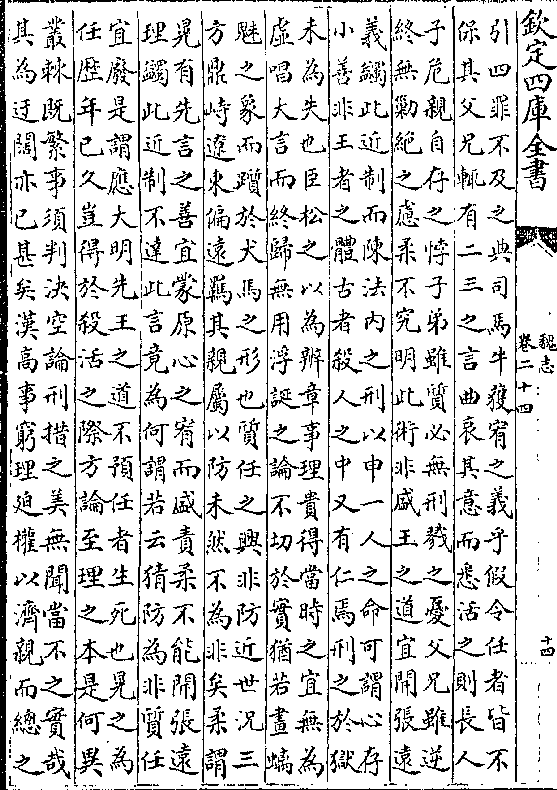 欽定四庫全書
魏志
卷二十四
十四
引四罪不及之典司馬牛獲宥之義乎假令任者皆不
保其父兄輒有二三之言曲哀其意而悉活之則長人
子危親自存之悖子弟雖質必無刑戮之憂父兄雖逆
終無勦絕之慮柔不究明此術非盛王之道宜開張遠
義蠲此近制而陳法内之刑以申一人之命可謂心存
小善非王者之體古者殺人之中又有仁焉刑之於獄
未為失也臣松之以為辨章事理貴得當時之宜無為
虛唱大言而終歸無用浮誕之論不切於實猶若畫螭
魅之象而躓於犬馬之形也質任之興非防近世況三
方鼎峙遼東偏遠羈其親屬以防未然不為非矣柔謂
晃有先言之善宜蒙原心之宥而盛責柔不能開張遠
理蠲此近制不達此言竟為何謂若云猜防為非質任
宜廢是謂應大明先王之道不預任者生死也晃之為
任歴年已久豈得於殺活之際方論至理之本是何異
叢棘既繁事須判決空論刑措之美無聞當不之實哉
其為迂闊亦已甚矣漢高事窮理迫權以濟親而總之